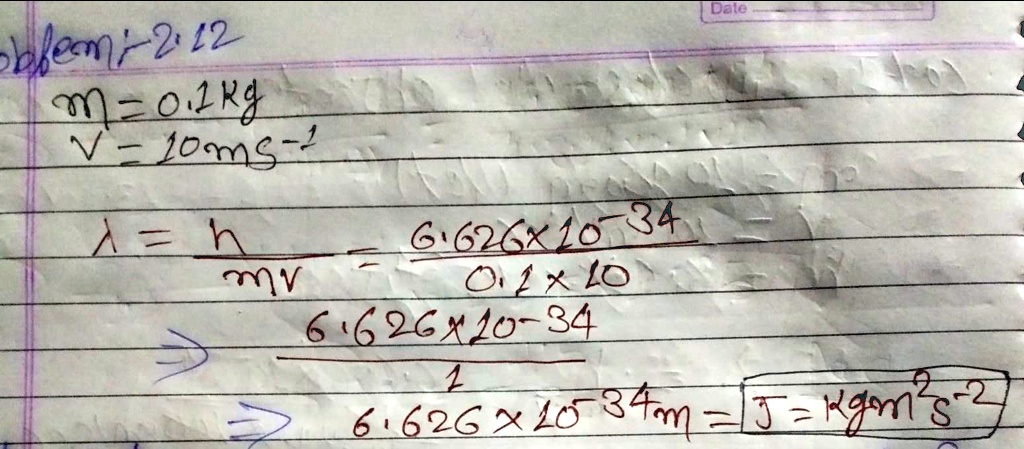 Date
oblem:- 2.12
m = 0.1 Kg
V = 10 ms-1
λ = h/mv = 6.626×10-34/0.1×10
⇒ 6.626×10-34/1
⇒ 6.626×10-34 m = J = Kgm2s-2